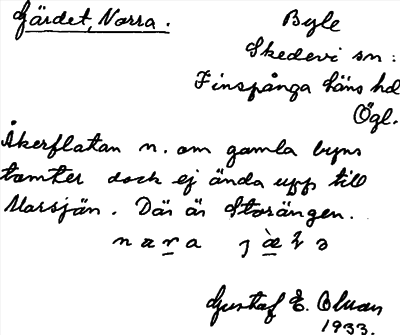 Gärdet, Norra.
Byle
Skedevi sn:
Finspånga läns hd
Ögl.
Åkerflatan n. om gamla byns
tomter dock ej ända upp till
Marsjön. Där är Storängen.
Gustaf E. Olsson
1933.